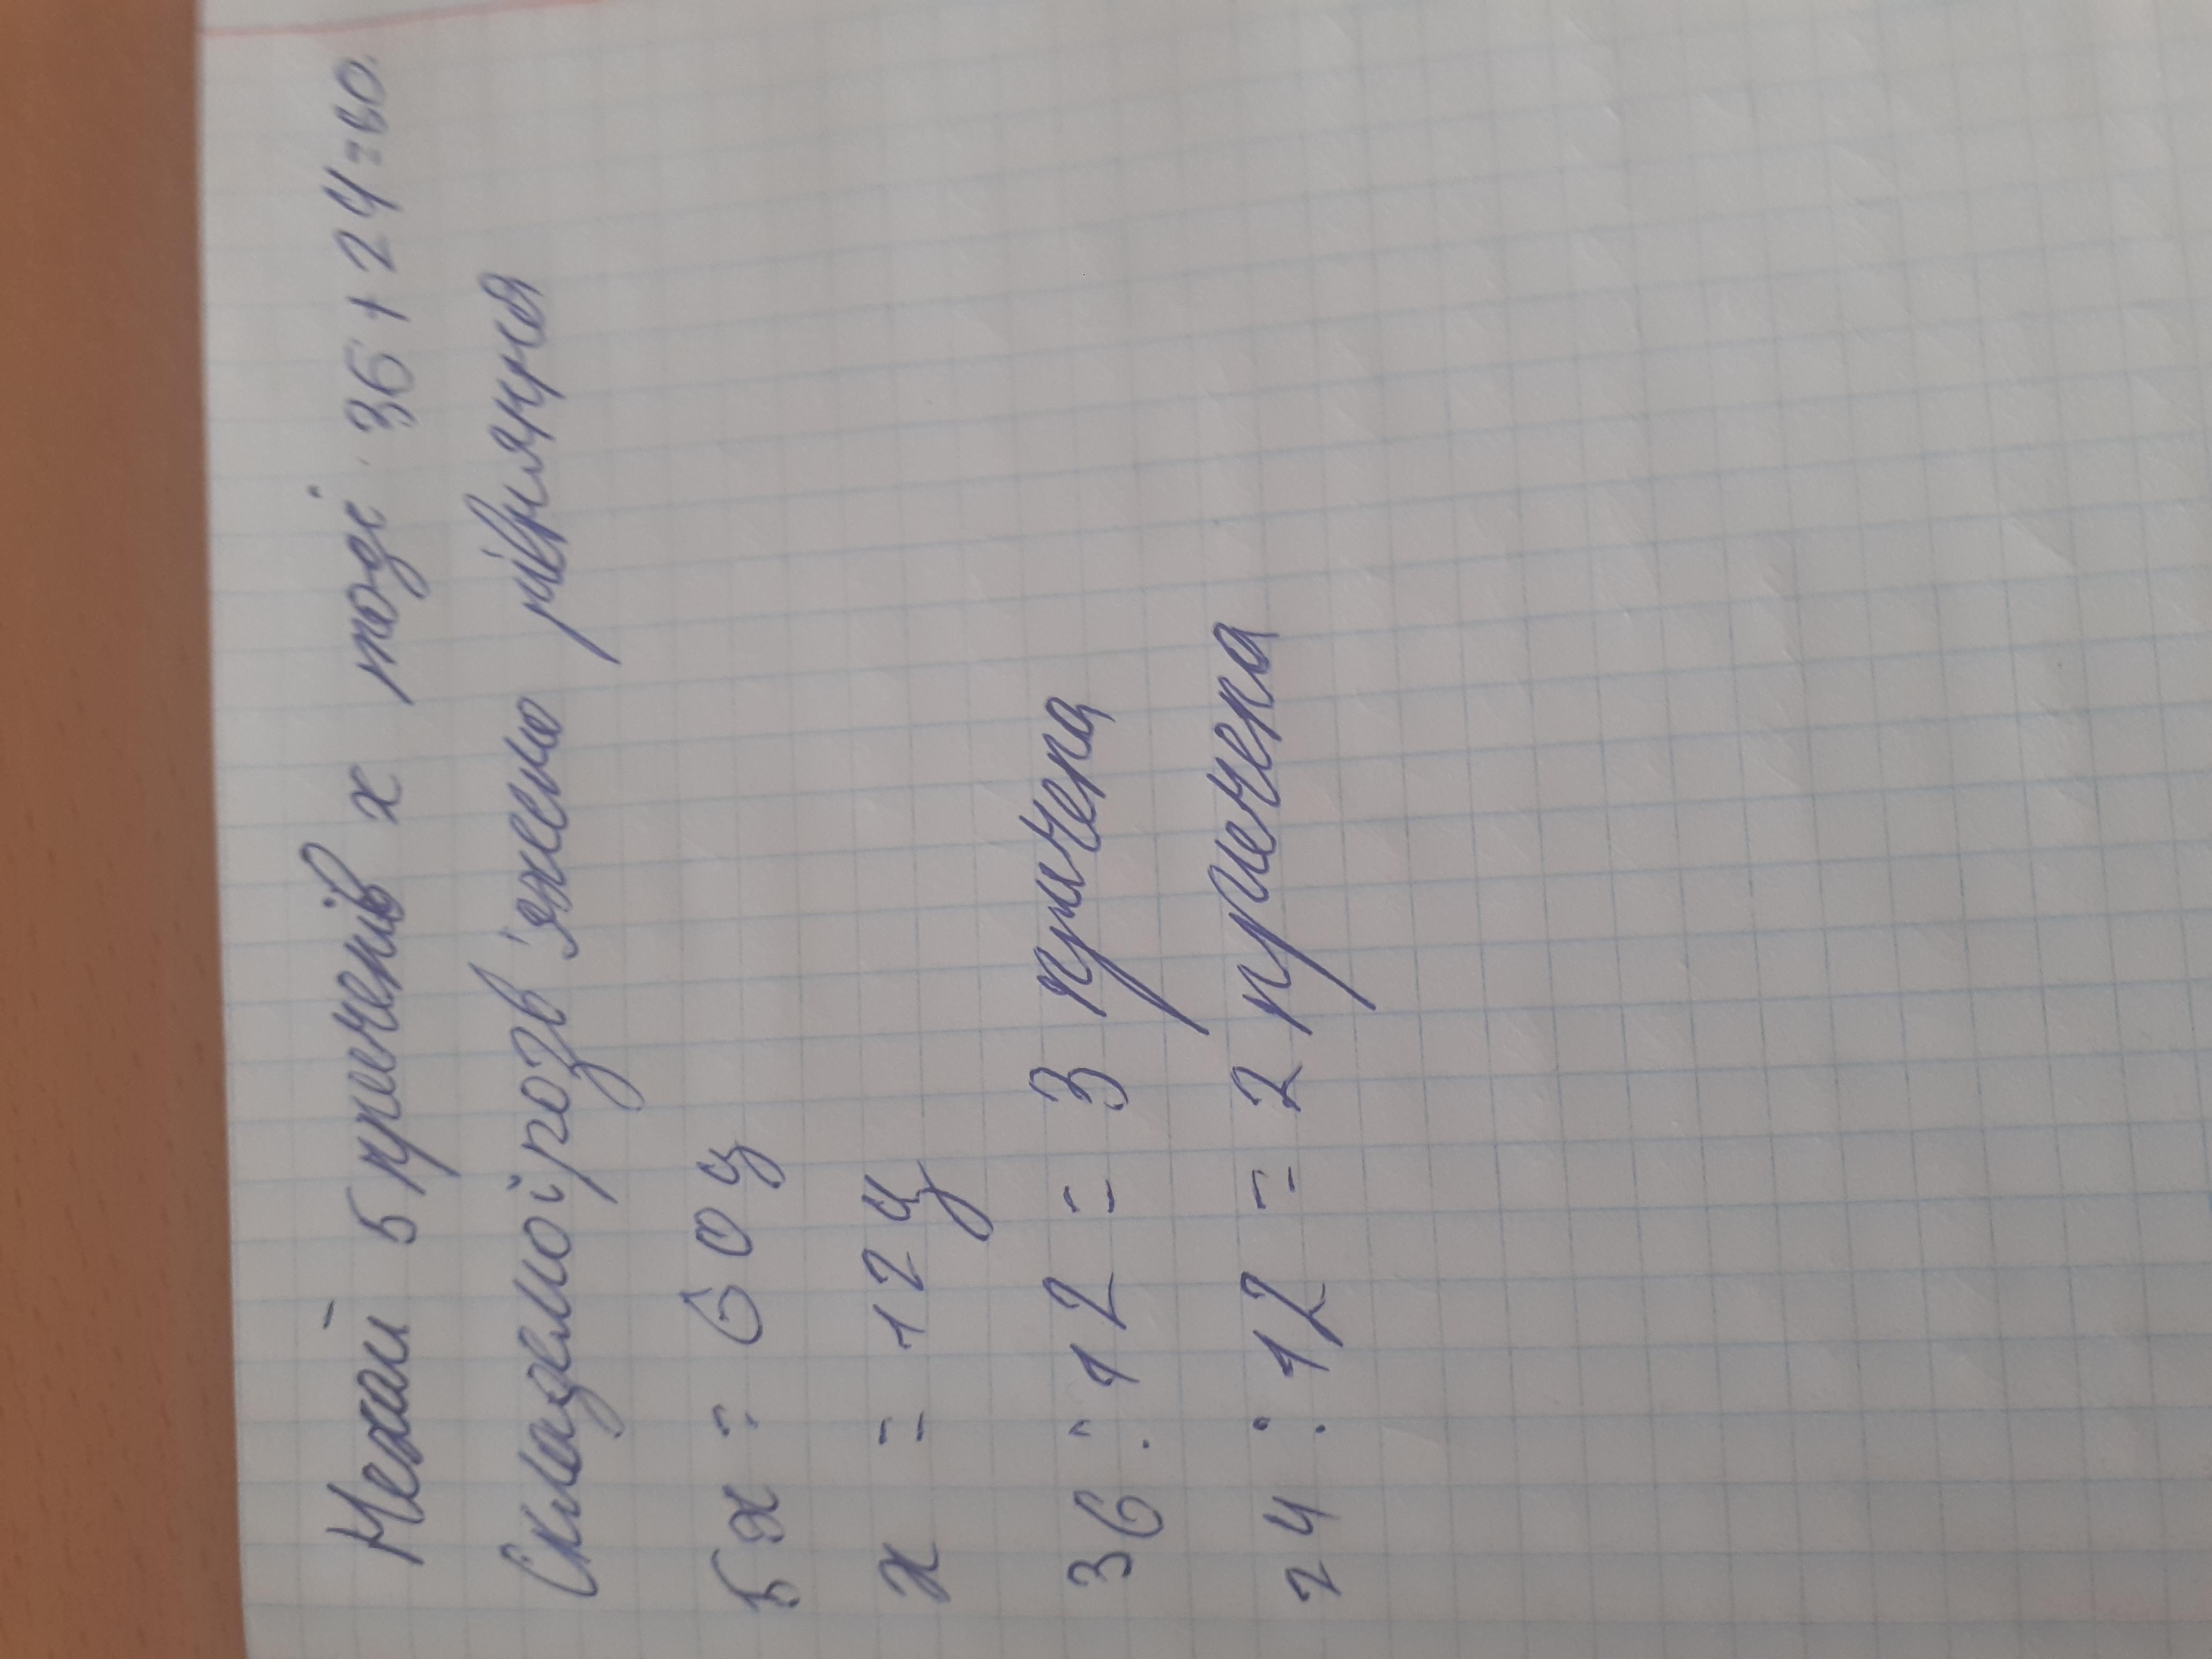 Нехай 5 причепів х тоді 36 + 24 = 60.
Складемо і розв'яжемо рівняння
5х = 60 ц
х = 12 ц
36 : 12 = 3 причепа
24 : 12 = 2 причепа